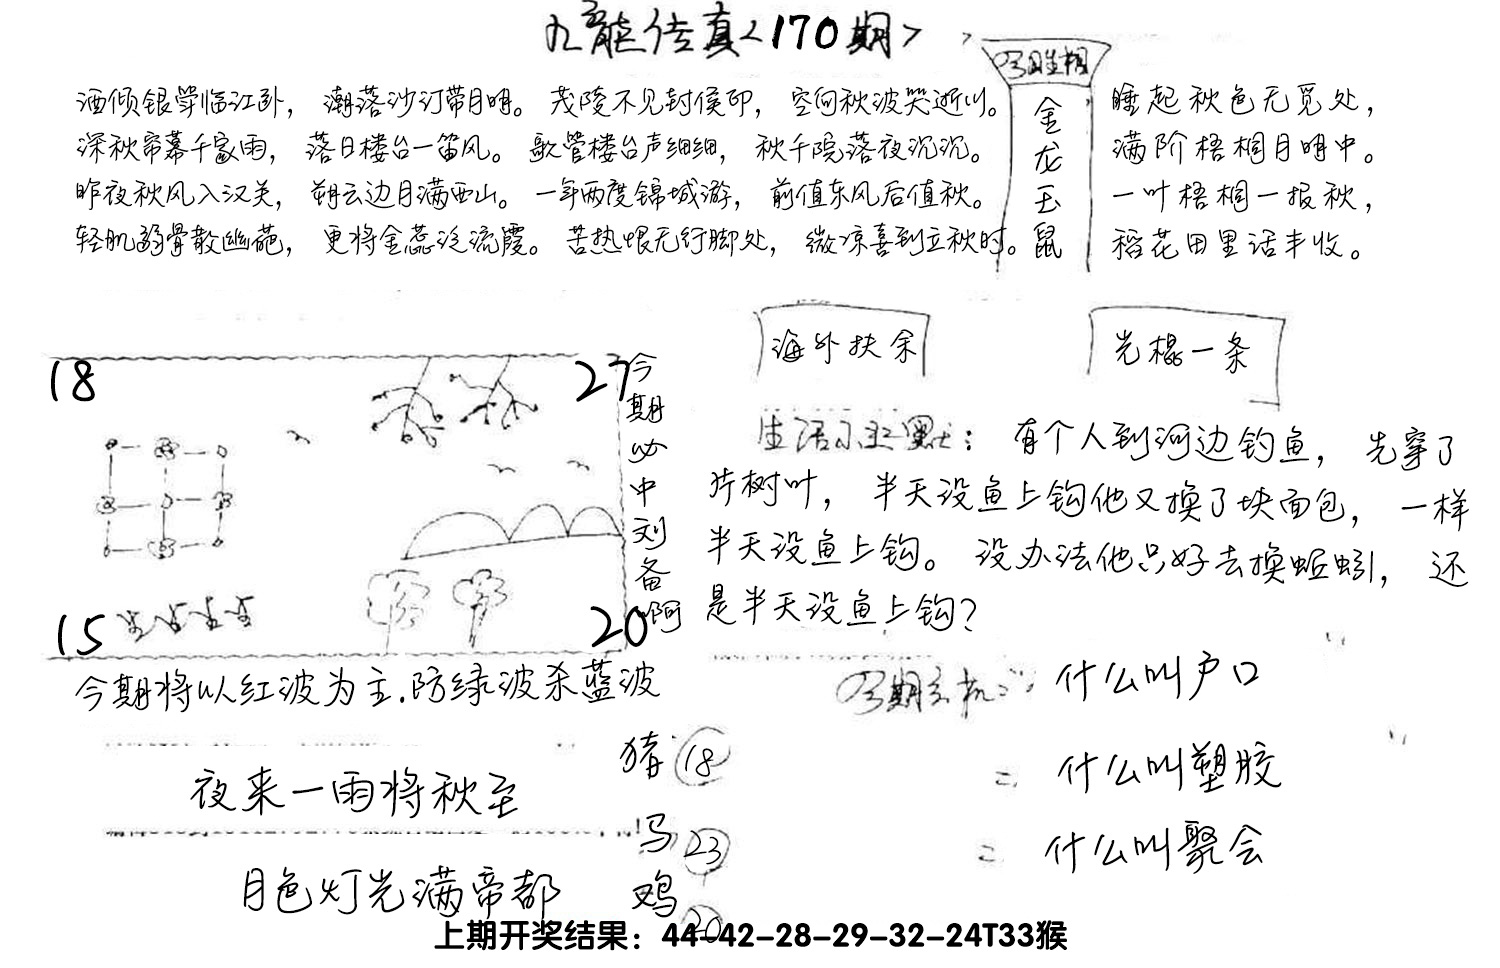 九龍传真<170期>
酒倾银学临江卧，潮落沙汀带月明。茂陵不见封侯印，空向秋波哭逝川。
深秋帘幕千家雨，落日楼台一笛风。歌管楼台声细细，秋千院落夜沉沉。
昨夜秋风入汉关，朔云边月满西山。一年两度锦城游，前值东风后值秋。
轻肌弱骨散幽葩，更将金蕊泛流霞。苦热恨无行脚处，微凉喜到立秋时。
今期生相
金龙玉鼠
睡起秋色无觅处，
满阶梧桐月明中。
一叶梧桐一报秋，
稻花田里话丰收。
18
27
15
20
今期必中刘备啊
今期将以红波为主.防绿波杀蓝波
夜来一雨将秋至
月色灯光满帝都
猪 18
马 23
鸡 20
海外扶余
光棍一条
生活小幽默：有个人到河边钓鱼，先穿了
片树叶，半天没鱼上钩他又换了块面包，一样
半天没鱼上钩。没办法他只好去换蚯蚓，还
是半天没鱼上钩？
今期玄机 一 什么叫户口
二 什么叫塑胶
三 什么叫聚会
上期开奖结果：44-42-28-29-32-24T33猴